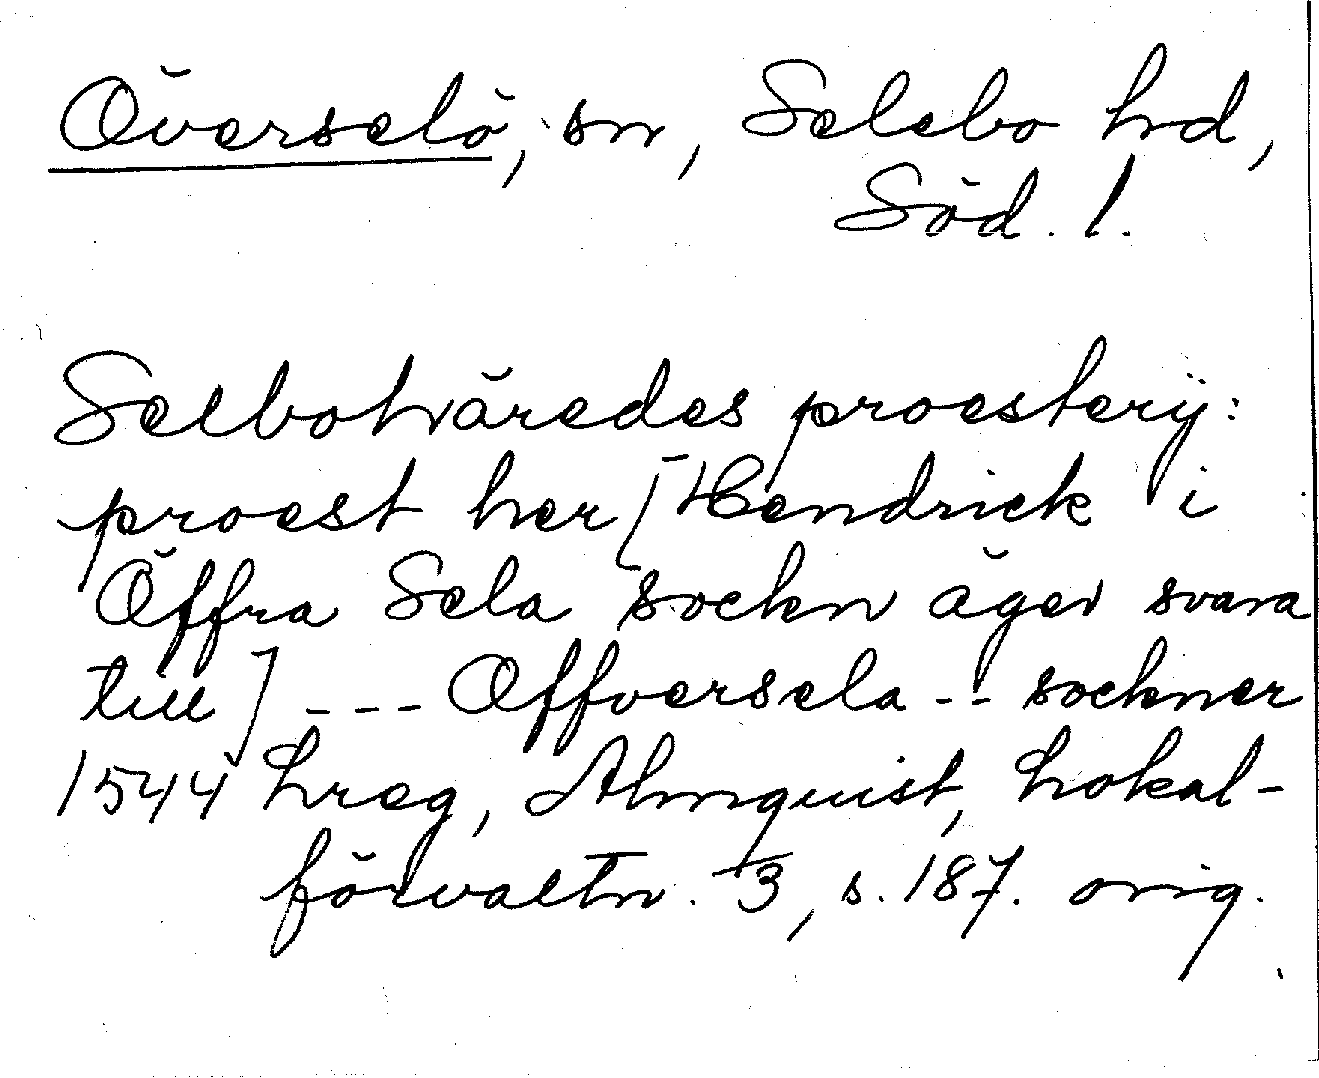 Överselö, sn, Selebo hd,
Söd. l.
Selbohäredes proesterij:
proest her [Hendrick i
Öffra Sela sockn äger svara
till] --- Offversela -- sockner
1544 Lreg, Almquist, Lokal-
förvaltn. 3, s. 187. orig.